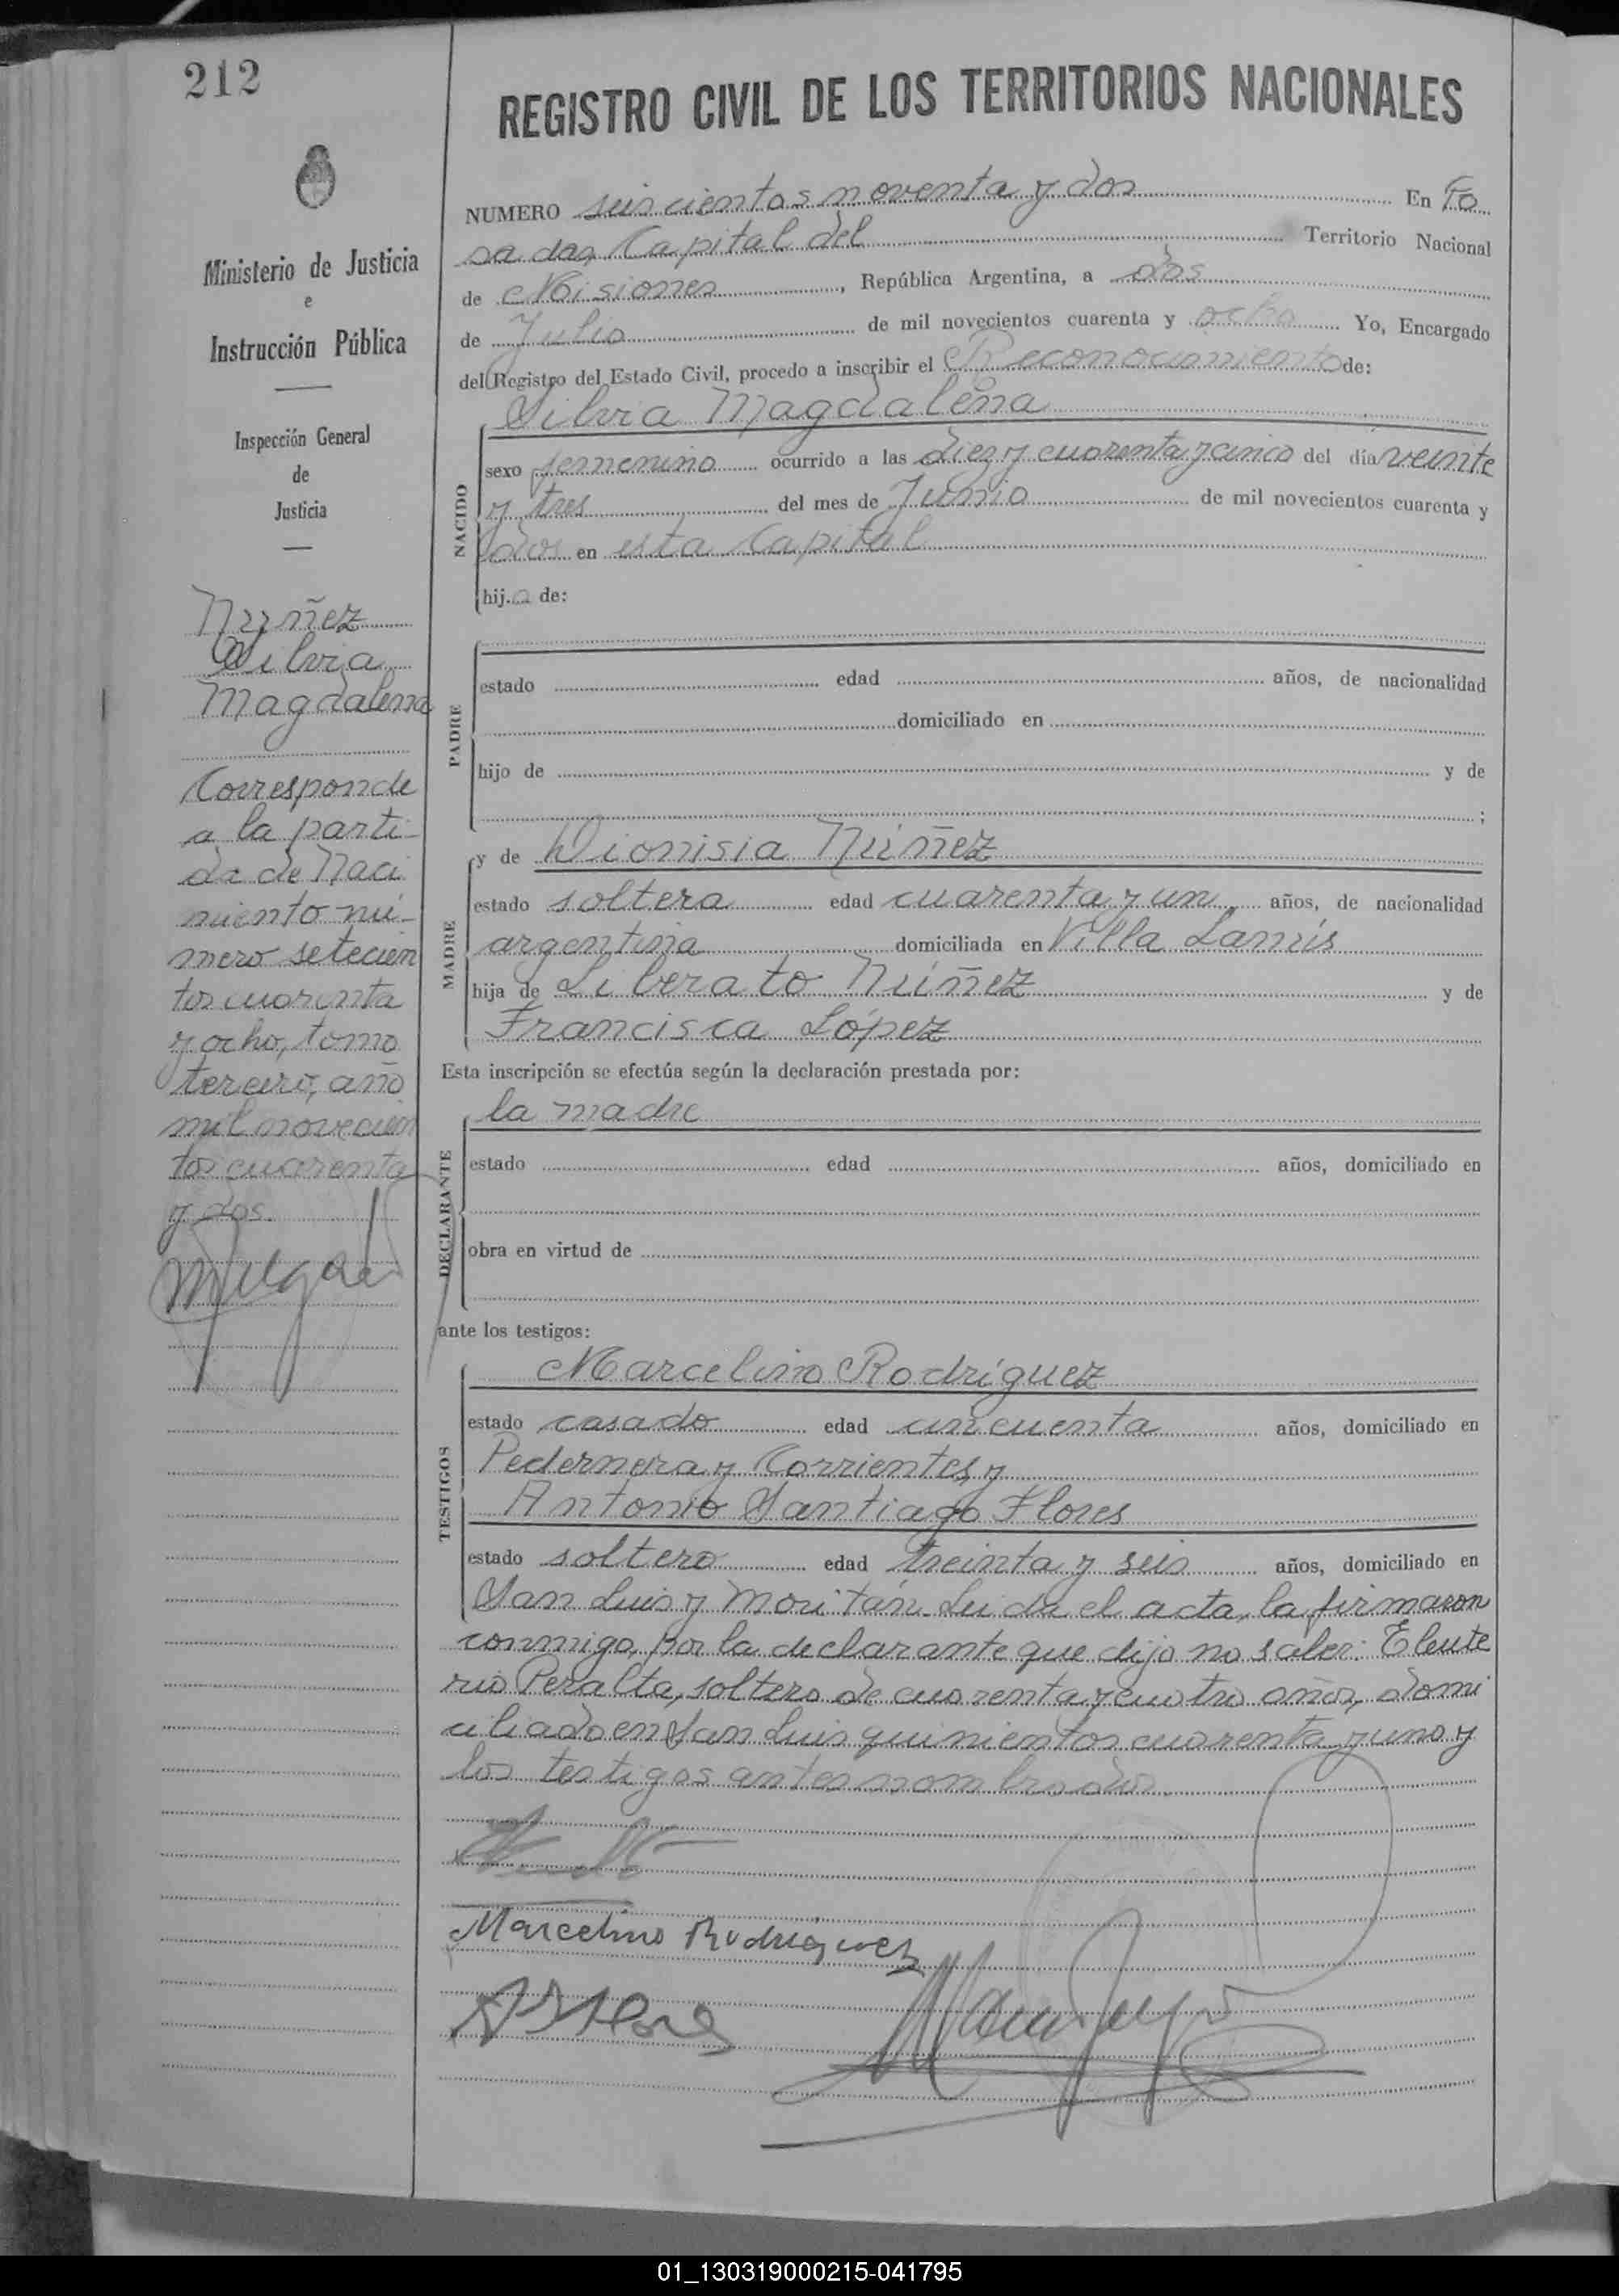 212
Ministerio de Justicia
e
Instrucción Pública
Inspección General
de
Justicia
Nuñez
Silvia
Magdalena
Corresponde
a la parti-
da de Naci
miento nú-
mero setecien
tos cuarenta
y ocho, tomo
tercero, año
mil novecien
tos cuarenta
y dos.
REGISTRO CIVIL DE LOS TERRITORIOS NACIONALES
NUMERO seiscientos noventa y dos En Po
sadas, Capital del Territorio Nacional
de Misiones, República Argentina, a dos
de Julio de mil novecientos cuarenta y ocho Yo, Encargado
del Registro del Estado Civil, procedo a inscribir el Reconocimiento de:
Silvia Magdalena
NACIDO
sexo femenino ocurrido a las diez y cuarenta y cinco del día veinte
y tres del mes de Junio de mil novecientos cuarenta y
dos en esta Capital
hija de:
PADRE
estado edad años, de nacionalidad
domiciliado en
hijo de y de
;
MADRE
y de Dionisia Núñez
estado soltera edad cuarenta y un años, de nacionalidad
argentina domiciliada en Villa Lanús
hija de Liberato Núñez y de
Francisca López
Esta inscripción se efectúa según la declaración prestada por:
la madre
DECLARANTE
estado edad años, domiciliado en
obra en virtud de
ante los testigos:
TESTIGOS
Marcelino Rodríguez
estado casado edad cincuenta años, domiciliado en
Pedernera y Corrientes y
Antonio Santiago Flores
estado soltero edad treinta y seis años, domiciliado en
San Luis y Moritán. Leida el acta, la firmaron
conmigo, por la declarante que dijo no saber: Eleute
rio Peralta, soltero de cuarenta y cuatro años, domi
ciliado en San Luis quinientos cuarenta y uno y
los testigos antes nombrados
Marcelino Rodríguez
A S Flores
01_130319000215-041795